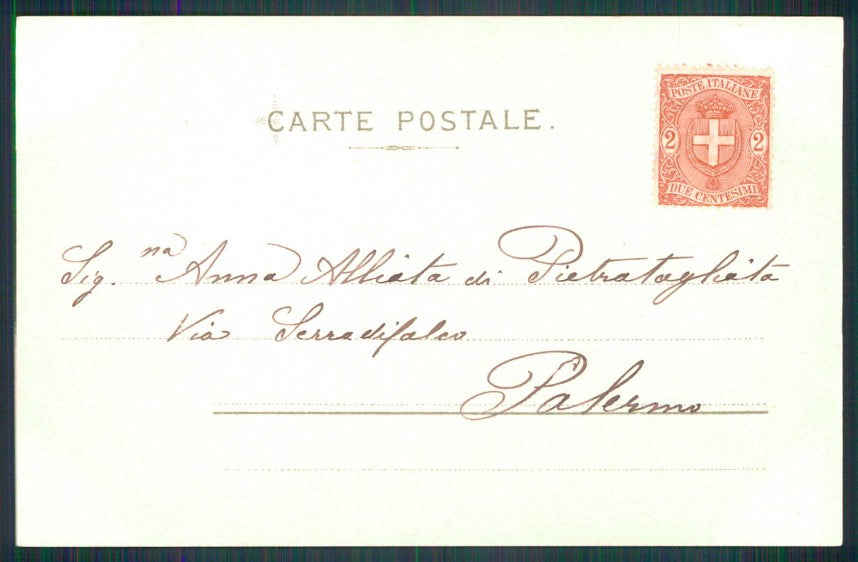 CARTE POSTALE.
POSTE ITALIANE
2 2
DUE CENTESIMI
Sig.na Anna Alliata di Pietratagliata
Via Serradifalco
Palermo